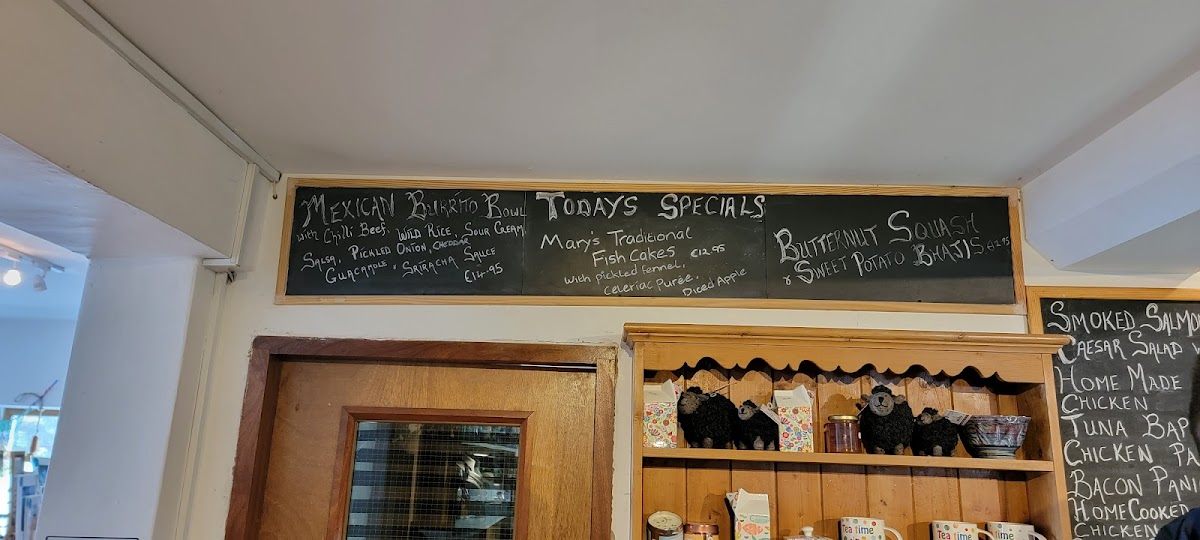 Mexican Burrito Bowl
with Chilli Beef, Wild Rice, Sour Cream,
Salsa, Pickled Onion, Cheddar
Guacamole, Sriracha Sauce
€14.95
Todays Specials
Mary's Traditional
Fish Cakes €12.95
with pickled fennel,
Celeriac Purée,
Diced Apple
Butternut Squash
& Sweet Potato Bhajis €12.95
Smoked Salmo
Caesar Salad
Home Made
Chicken
Tuna Bap
Chicken Pa
Bacon Pani
HomeCooked
Chicken
Tea time
Tea time
Tea time